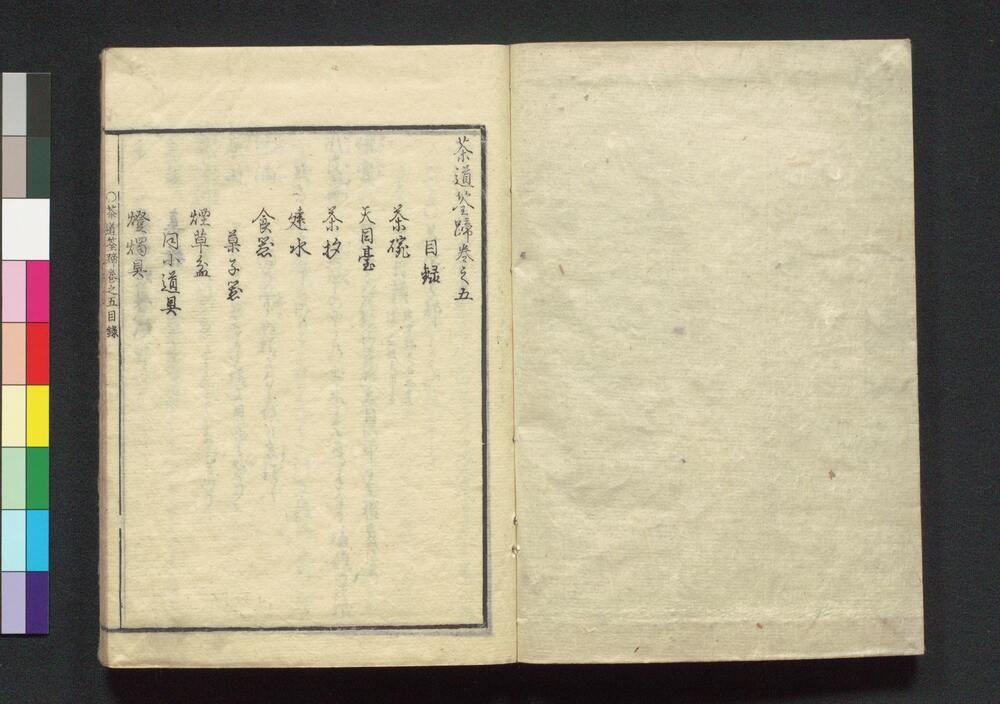 茶道筌蹄巻之五
目録
茶碗
天目臺
茶杓
建水
食器
菓子器
煙草盆
同小道具
燈燭具
○茶道筌蹄巻之五目錄